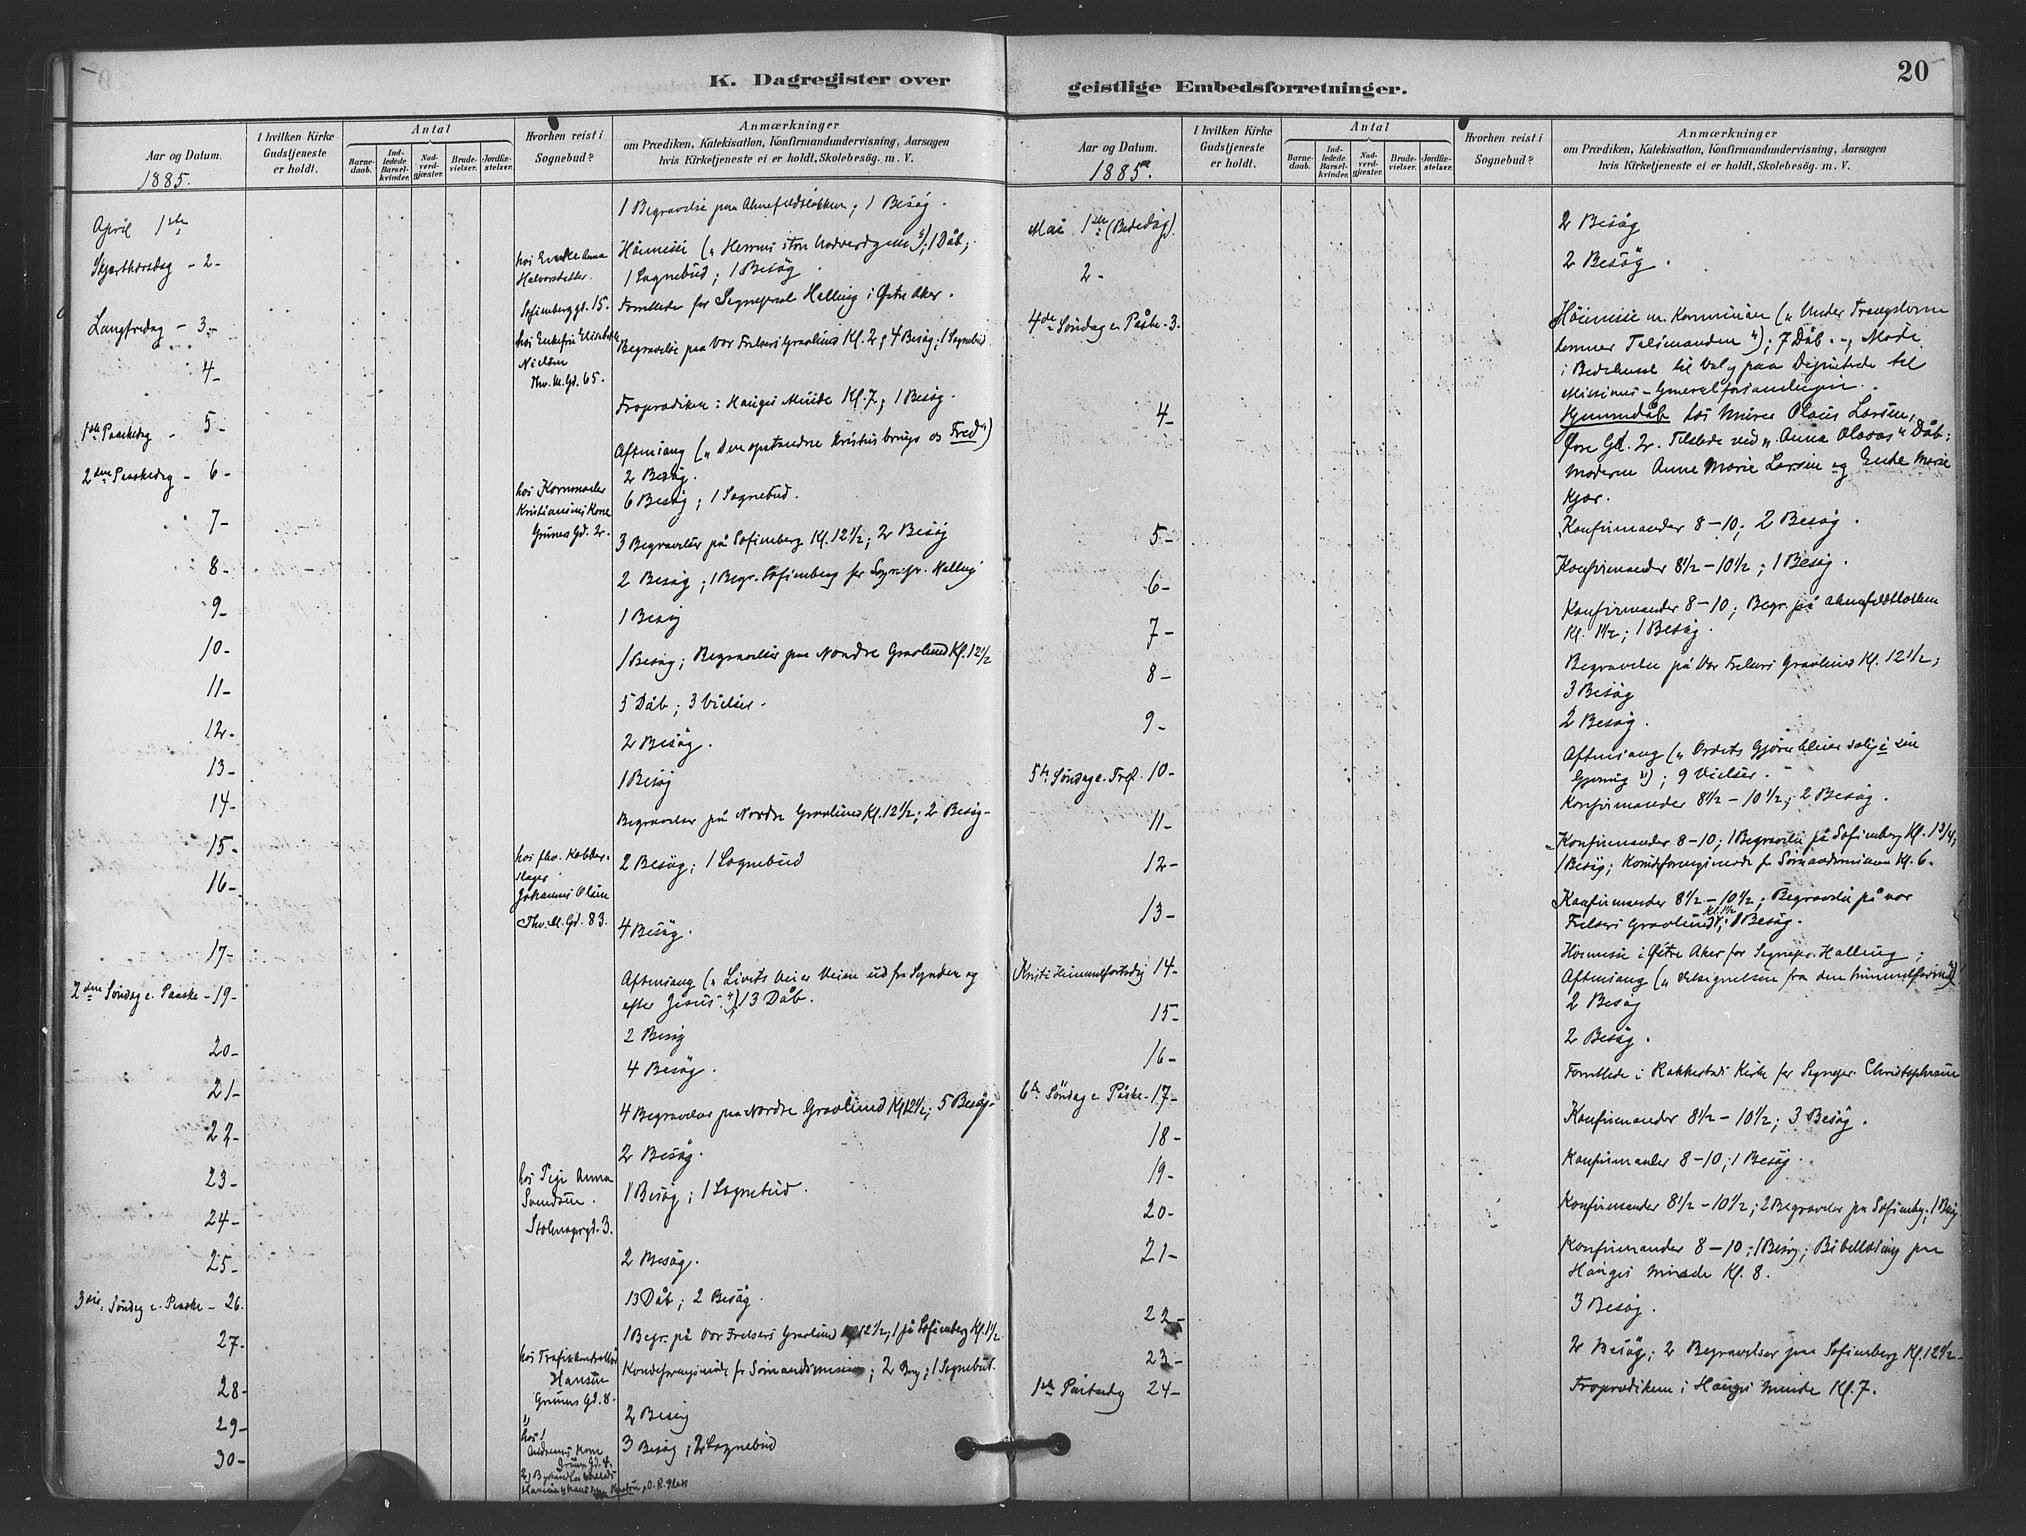 K. Dagregister over
Aar og Datum.
1885.
I hvilken Kirke
Gudstjeneste
er holdt.
Antal
Barne-
daab.
Ind-
ledede
Barsel-
kvinder.
Nad-
verd-
gjæster.
Brude-
vielser.
Jordfæ-
stelser.
Hvorhen reist i
Sognebud?
Anmærkninger
om Prædiken, Katekisation, Konfirmandundervisning, Aarsagen
hvis Kirketjeneste ei er holdt, Skolebesøg. m. V.
April 1ste
1 Begravelse paa Ahnefeldtsløkken; 1 Besøg.
Skjærthorsdag - 2 -
hos Enke Anna
Halvorsdatter
Sofienberggd. 15.
Høimesse („Herrens store Nadverdgjæst“); 1 Dåb;
1 Sognebud; 1 Besøg
Langfredag - 3 -
hos Enkefru Elisabeth
Nielsen
Thv. M. Gd. 65.
Forrettede for Sognepræst Halling i Østre Aker.
4 -
Begravelse paa Vor Frelsers Gravlund Kl. 2; 4 Besøg; 1 Sognebud
1ste Paaskedag - 5 -
Froprædiken i Hauges Minde Kl. 7; 1 Besøg.
2den Paaskedag - 6 -
Aftensang („Den opstandne Kristus bringe os Fred“)
2 Besøg.
7 -
hos
Kristiansens Kone
Grüners Gd. 2.
6 Besøg; 1 Sognebud.
8 -
3 Begravelser på Sofienberg Kl. 12½; 2 Besøg
9 -
2 Besøg; 1 Begr. Sofienberg for Sognepr. Halling
10 -
1 Besøg
11 -
1 Besøg; Begravelser paa Nordre Gravlund Kl. 12½
12 -
5 Dåb; 3 Vielser.
13 -
2 Besøg.
14 -
1 Besøg
15 -
Begravelser på Nordre Gravlund Kl. 12½; 2 Besøg -
16 -
hos fhv. Kobber-
slager
Johannes Olsen
Thv. M. Gd. 83.
2 Besøg; 1 Sognebud
17 -
4 Besøg.
2den Søndag e. Paaske - 19 -
Aftensang („Livets Vei er Veien ud fra Synden og
efter Jesus“); 13 Dåb.
20 -
2 Besøg
21 -
4 Besøg.
22 -
4 Begravelser paa Nordre Gravlund Kl 12½; 5 Besøg -
23 -
2 Besøg.
24 -
hos Pige Anna
Svendsen.
Stolmagergd. 3.
1 Besøg; 1 Sognebud.
25 -
2 Besøg.
3die Søndag e. Paaske - 26.
13 Dåb; 2 Besøg.
27 -
1 Begr. på Vor Frelsers Gravlund Kl 12½, 1 på Sofienberg Kl. 1½
28 -
hos Trafikkontrollør
Hansen
Grüners Gd. 8.
Komiteforeningsmøde for Sømandsmissionen; 2 Besøg; 1 Sognebud.
29 -
2 Besøg
30 -
hos 1)
Kone
Grüners Gd. 4.
3 Besøg; 2 Sognebud
geistlige Embedsforretninger.
20
Aar og Datum.
1885.
I hvilken Kirke
Gudstjeneste
er holdt.
Antal
Barne-
daab.
Ind-
ledede
Barsel-
kvinder.
Nad-
verd-
gjæster.
Brude-
vielser.
Jordfæ-
stelser.
Hvorhen reist i
Sognebud?
Anmærkninger
om Prædiken, Katekisation, Konfirmandundervisning, Aarsagen
hvis Kirketjeneste ei er holdt, Skolebesøg. m. V.
Mai 1ste (Bededag).
2 Besøg
2 -
2 Besøg.
4de Søndag e. Påske - 3.
Høimesse m. Kommunion („Under Trængslerne
kommer Talsmanden“); 7 Dåb. -; Møde
i Bedehuset til Valg paa Deputerede til
Missions-Generalforsamlingen.
4 -
Hjemmedåb hos Murer Olaus Larsen,
Øvre Gd. 2. Tilstede ved „Anna Olavas“ Dåb:
Moderen Anne Marie Larsen og Enke Marie
Kjær.
5 -
Konfirmander 8-10; 2 Besøg.
6 -
Konfirmander 8½-10½; 1 Besøg.
7 -
Konfirmander 8-10; Begr. på Ahnefeldtløkken
Kl. 1½; 1 Besøg.
8 -
Begravelse på Vor Frelsers Gravlund Kl. 12½;
3 Besøg
9 -
2 Besøg.
5te Søndag e. Påske 10 -
Aftensang („Ordets Gjører bliver salig i sin
Gjerning“); 9 Vielser.
11 -
Konfirmander 8½-10½; 2 Besøg.
12 -
Konfirmander 8-10; 1 Begravelse på Sofienberg Kl. 1¾;
1 Besøg; Komiteforeningsmøde for Sømandsmissionen Kl. 6.
13 -
Konfirmander 8½-10½; Begravelse på Vor
Frelsers Gravlund Kl. 1½; 1 Besøg.
Kristi Himmelfartsdag 14 -
Høimesse i Østre Aker for Sognepr. Halling;
Aftensang („Velsignelsen fra den himmelfarne“)
15 -
2 Besøg
16 -
2 Besøg.
6te Søndag e. Påske - 17 -
Forrettede i Rakkestads Kirke for Sognepr. Christophersen
18 -
Konfirmander 8½-10½; 3 Besøg.
19 -
Konfirmander 8-10; 1 Besøg.
20 -
Konfirmander 8½-10½; 2 Begravelser paa Sofienberg; 1 Besøg
21 -
Konfirmander 8-10; 1 Besøg; Bibellæsning paa
Hauges Minde Kl. 8.
22 -
3 Besøg.
23 -
2 Besøg; 2 Begravelser paa Sofienberg Kl. 12½ -
1ste Pintsedag 24 -
Froprædiken i Hauges Minde Kl. 7.